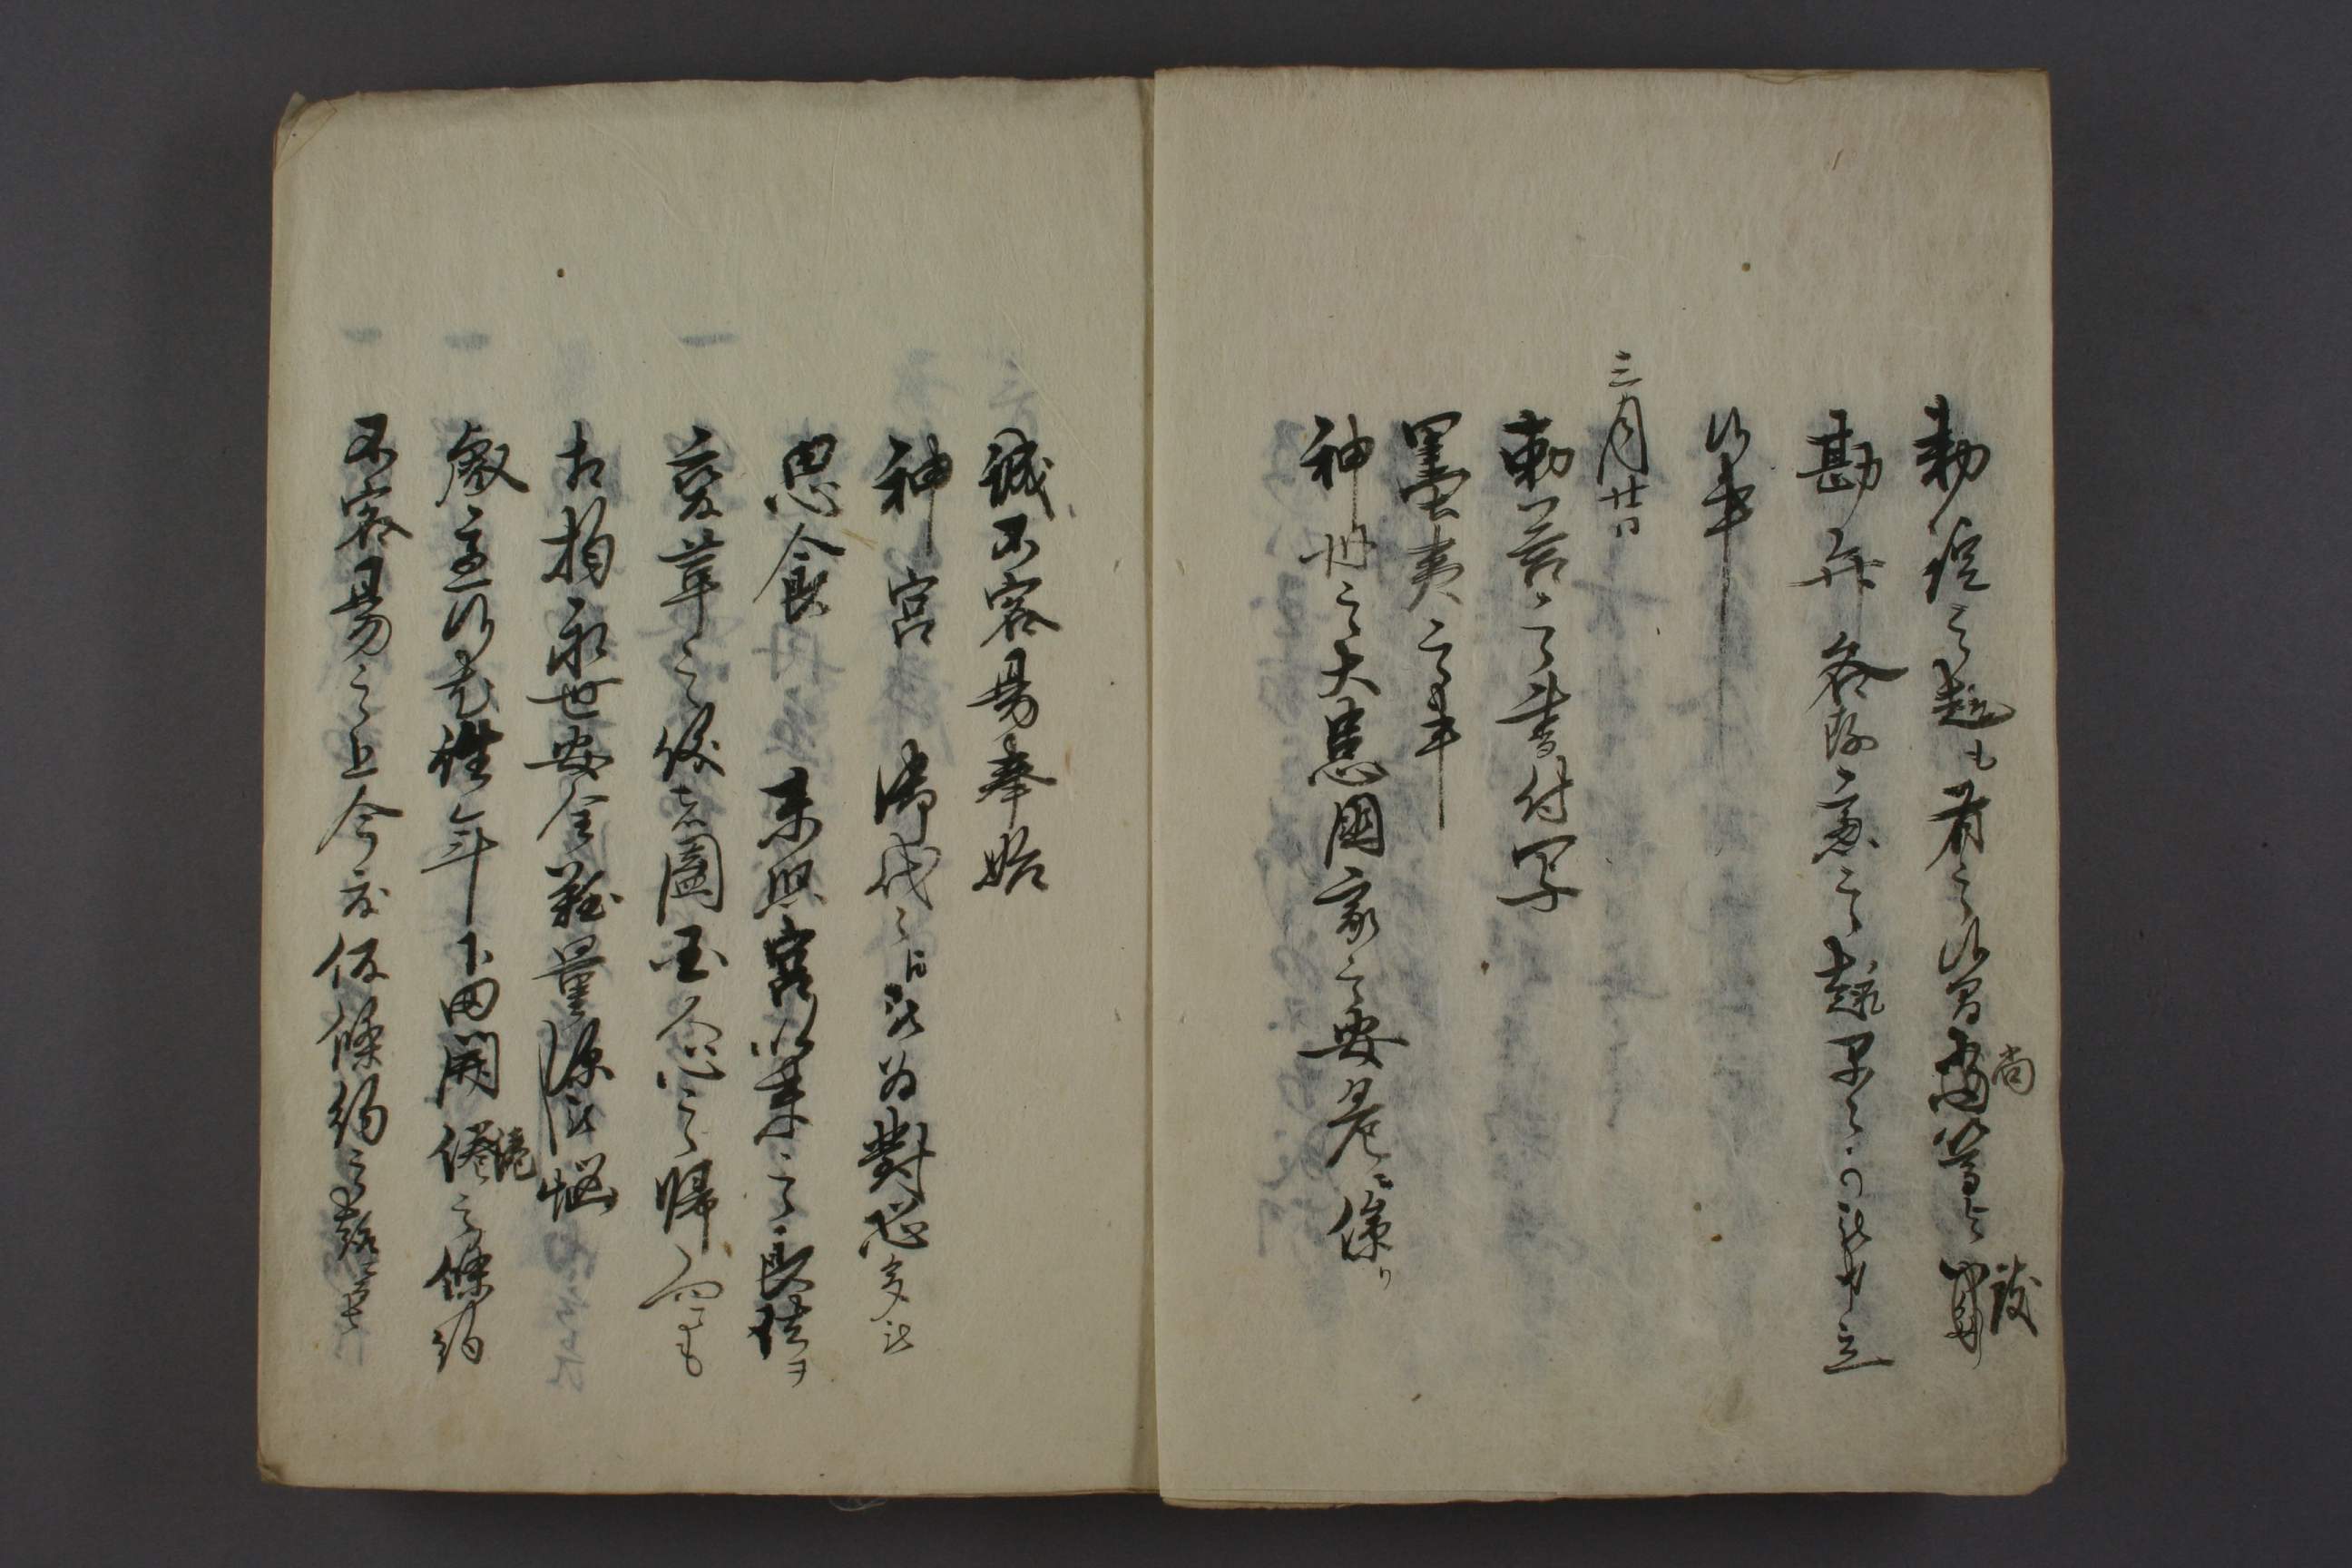 勅諚之趣も有之候間尚
勘弁各所意之趣早々可被申立
候事
三月廿日
勅答之書付写
墨夷之事
神州之大患国家之安危ニ係り
誠不容易奉始
神宮 御代々江被為對恐多被
思食 東照宮以来之良法ヲ
変革之儀者闔国人心之帰向ニも
相拘永世安全難量深被悩
叡慮候尤往年下田開港之條約
不容易之上今度仮條約之趣